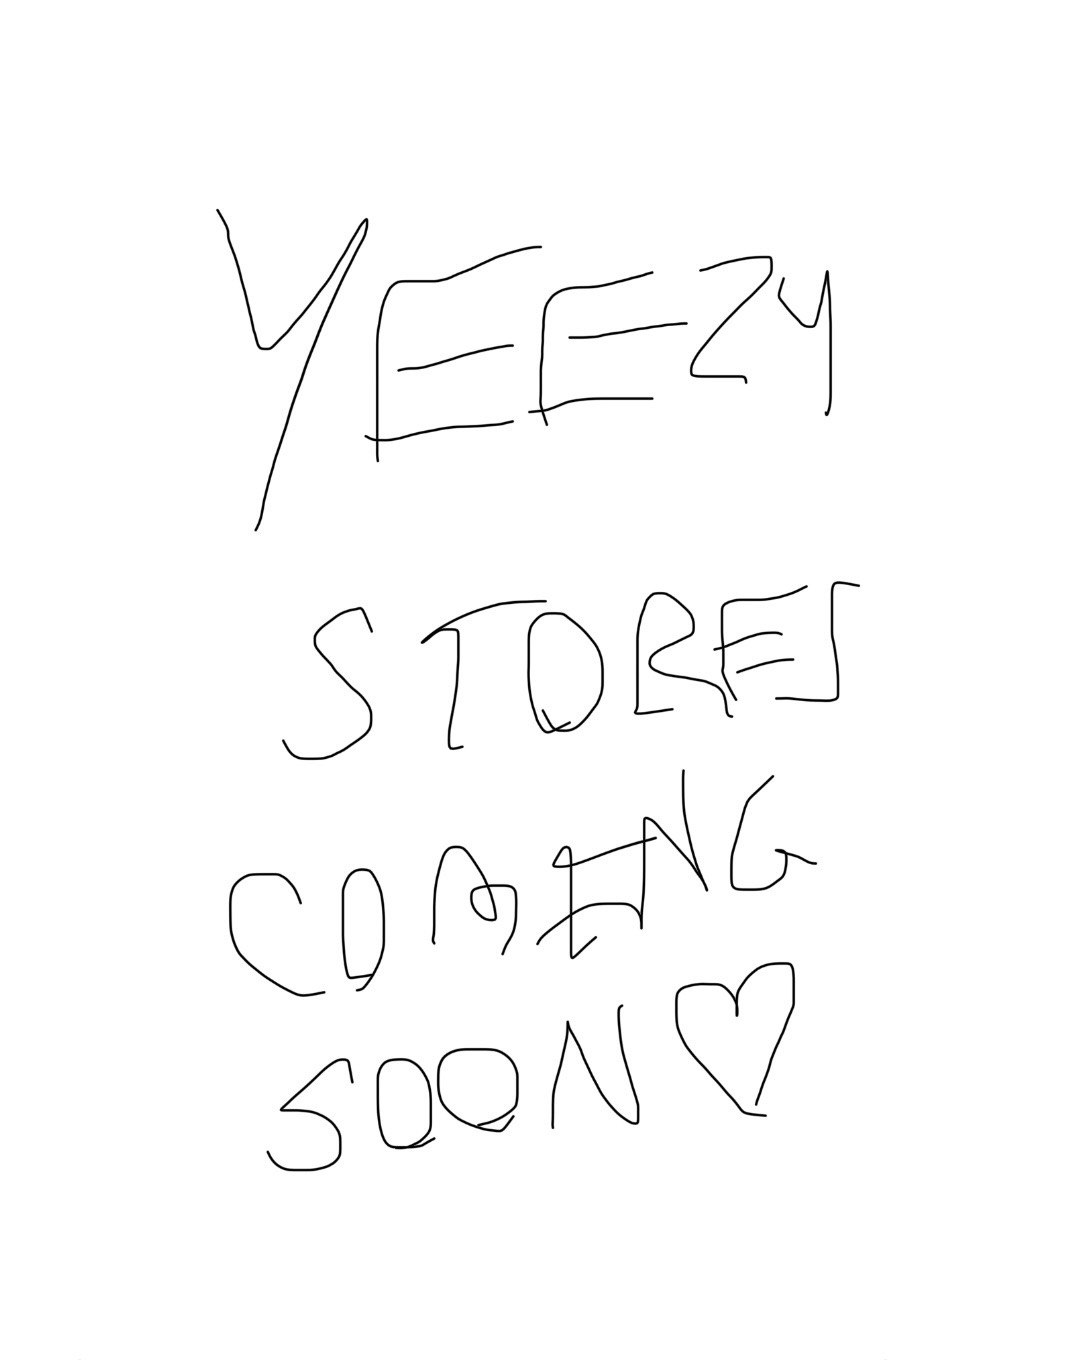 YEEZY
STORES
COMING
SOON♡